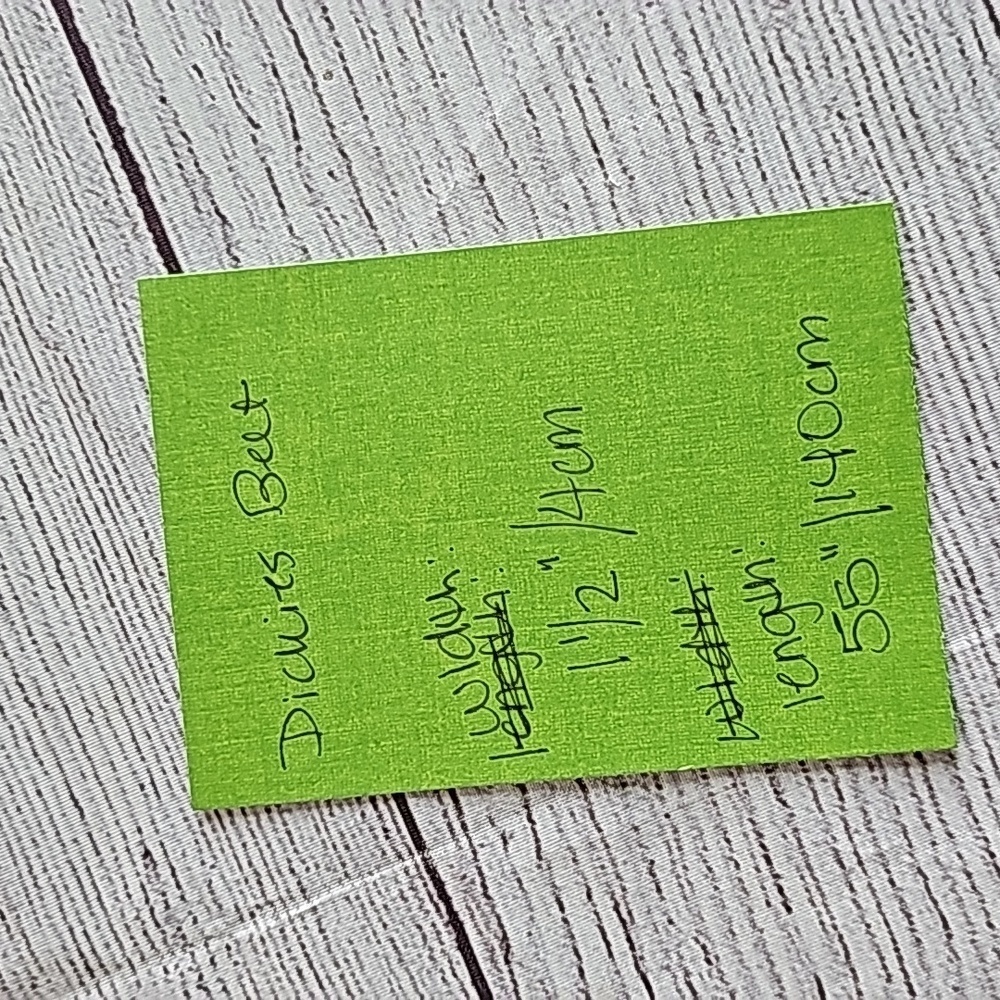 Dickies Belt
Width:
length:
1 1/2" / 4cm
width:
length:
55" / 140cm